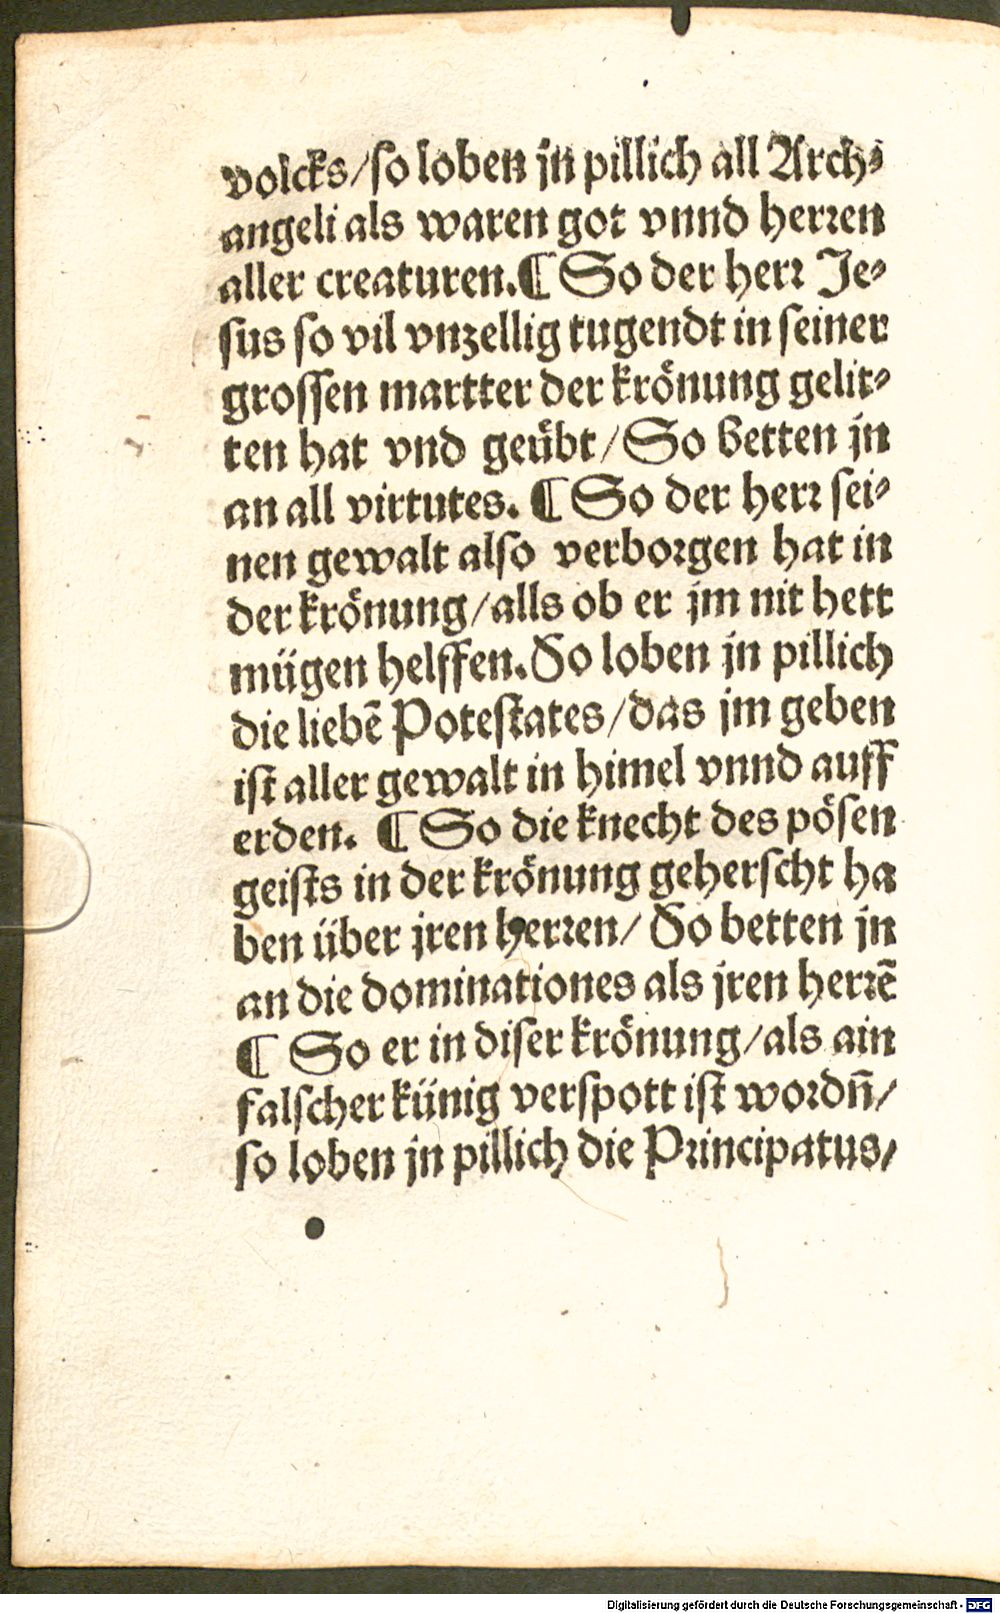 volcks/so loben jn pillich all Arch⸗
angeli als waren got vnnd herꝛen
aller creaturen.¶ So der herꝛ Je⸗
sus so vil vnzellig tugendt in seiner
grossen martter der krönung gelit⸗
ten hat vnd geübt/So betten jn
an all virtutes. ¶ So der herꝛ sei⸗
nen gewalt also verboꝛgen hat in
der krönung/alls ob er jm nit hett
mügen helffen.So loben jn pillich
die liebē Potestates/das jm geben
ist aller gewalt in himel vnnd auff
erden. ¶ So die knecht des pösen
geists in der krönung geherscht ha
ben über jren herꝛen/ So betten jn
an die dominationes als jren herꝛē
¶ So er in diser krönung/als ain
falscher künig verspott ist woꝛdn̄/
so loben jn pillich die Pꝛincipatus/
Digitalisierung gefördert durch die Deutsche Forschungsgemeinschaft - DFG